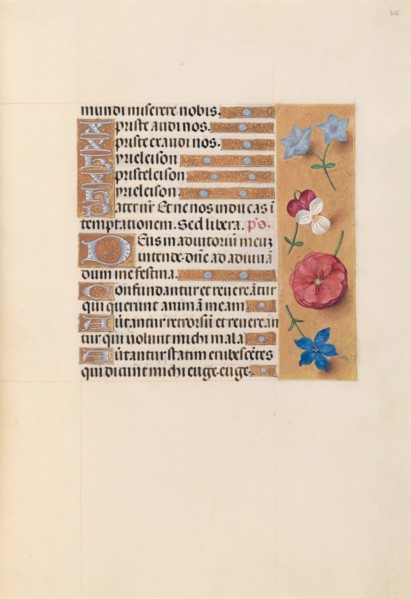 mundi miserere nobis.
Xpriste audi nos.
Xpriste exaudi nos.
Kyrieleison
Xpristeleison
Kyrieleison.
Pater nr̄ Et ne nos inducas ī
temptationem. Sed libera. p̄s.
Deus in adiutoriū meū
intende. dn̄e ad adiuuā
dum me festina.
Confundantur et reuereātur
qui querunt animā meam
Auertantur retrorsū et reuere an
tur qui uolunt michi mala
Auertantur statim erubescētes
qui dicunt michi euge euge.